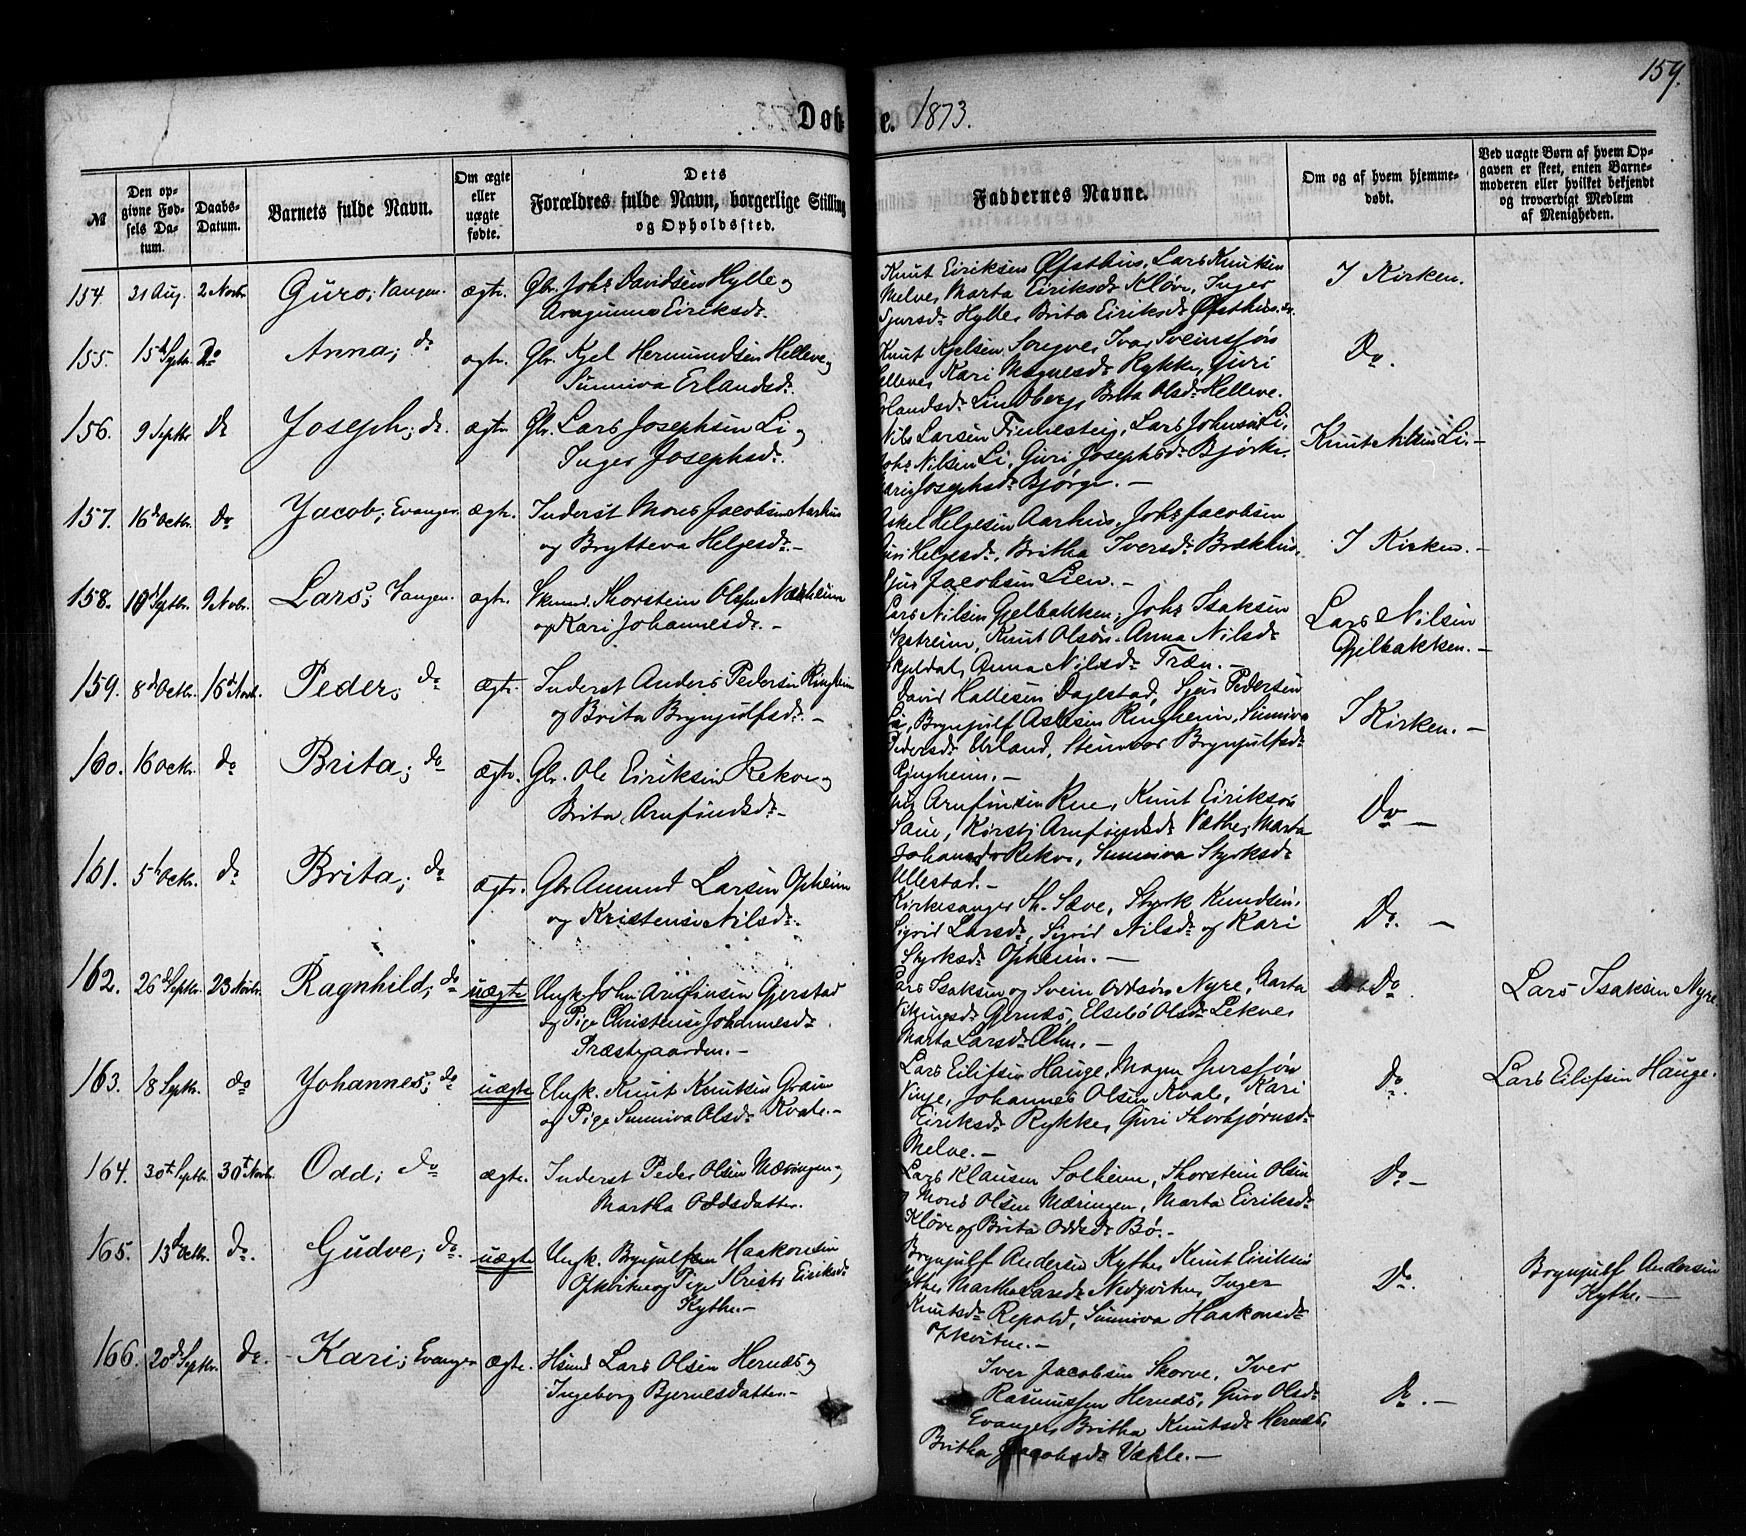 159.
Døb
te. 1873.
№
Den op-
givne Fød-
sels Da-
tum.
Daabs-
Datum.
Barnets fulde Navn.
Om ægte
eller
uægte
fødte.
Dets
Forældres fulde Navn, borgerlige Stilling
og Opholdssted.
Faddernes Navne.
Om og af hvem hjemme-
døbt.
Ved uægte Børn af hvem Op-
gaven er skeet, enten Barne-
moderen eller hvilket bekjendt
og troværdigt Medlem
af Menigheden.
154. 31 Aug. 2 Novbr Guro; Vangen. ægte. Gbr. Johs Davidsen Hylle og
Eiriksdr.
Knut Eiriksen Øfsthus, Lars Knutsen
Melve, Marta Eiriksdr Kløve, Inger
Sjursdr Hylle, Brita Eiriksdr Øfsthus.
I Kirken.
155. 15de Septbr. Do Anna; do ægte. Gbr. Kjel Hermundsen Helleve og
Sunniva Erlandsdr.
Knut Kjelsen Sonve, Ivar Sveinssøn
Helleve, Kari Magnesdr Rykke, Guri
Erlandsdr Lindberg, Brita Olsdr Helleve.
Do.
156. 9 Septbr do Joseph; do. ægte. Gbr. Lars Josephsen Li og
Inger Josephsdr.
Nils Larsen Finnesteig, Lars Johnsen Li,
Johs Nilsen Li, Guri Josephsdr Bjørke,
Mari Josephsdr Bjørge. —
Knut Nilsen Li. —
157. 16de Octbr. do Jacob; Evanger. ægte. Inderst Mons Jacobsen Aarhus
og Brytteva Helgesdr. —
Askel Helgesen Aarhus, Johs Jacobsen
Helgesdr, Britha Iversdr Brækhus,
Sjur Jacobsen Lien. —
I Kirken. —
158. 10de Septbr. 9 Novbr. Lars; Vangen. ægte. Thorstein Olsen Næsheim
og Kari Johannesdr. —
Lars Nilsen Gjelbakken, Johs Isaksen
Istreim, Knut Olsøn, Anna Nilsdr
Skjeldal, Anna Nilsdr Træn. —
Lars Nilsen
Gjelbakken. —
159. 8de Octbr. 16de Novbr. Peder; do ægte. Inderst Anders Pedersen Ringheim
og Brita Brynjulfsdr. —
David Hallesen Dagestad, Sjur Pedersen
Li, Brynjulf Aslesen Ringheim, Sunniva
Pedersdr Urland, Steinvor Brynjulfsdr
Ringheim. —
I Kirken. —
160. 16 Octbr. do Brita; do ægte. Gbr. Ole Eiriksen Rekve og
Brita Arnfindsdr. —
Arnfinsen Rue, Knut Eiriksøn
Saue, Kirsti Arnfindsdr Væthe, Marta
Johansdr Rekve, Sunniva Styrksdr
Ullestad. —
Do —
161. 5te Octbr. do Brita; do ægte. Gbr Amund Larsen Opheim
og Kristense Nilsdr. —
Kirkesanger Th. Sæve, Styrk Knudsen,
Sigrid Larsdr, Sigrid Nilsdr og Kari
Styrksdr Opheim. —
Do. —
162. 26de Septbr. 23 Novbr. Ragnhild; do uægte Ungk. John Arnfinsen Gjerstad
og Pige Christense Johannesdr
Præstegaarden. —
Lars Isaksen og Svein Oddsøn Nyre, Marta
Vikingsdr Gjernes, Elsebø Olsdr Lekve,
Marta Larsdr Øhn. —
Do.
Lars Isaksen Nyre.
163. 18 Septbr. do Johannes; do uægte Ungk. Knut Knutsen Graue
og Pige Sunniva Olsdr Kvale. —
Lars Eilifsen Hauge, Magne Sjurssøn
Vinje, Johannes Olsen Kvale, Kari
Eiriksdr Rykke, Guri Thorbjørnsdr
Melve. —
Do.
Lars Eilifsen Hauge.
164. 30te Septbr. 30te Novbr. Odd; do ægte. Inderst Peder Olsen Mæringen og
Martha Oddsdatter.
Lars Klausen Solheim, Thorstein Olsen
og Mons Olsen Mæringen, Marta Eiriksdr
Kløve og Brita Oddsdr Bø. —
Do. —
165. 13de Octbr. do. Gudve; do. uægte Ungk. Brynjulf Haakonsen
Opkvitne og Pige Kristi Eiriksdr
Kythe. —
Brynjulf Andersen Kythe, Knut Eiriksen
Kythe, Martha Larsdr Nedkvitne, Inger
Knutsdr Repald, Sunniva Haakonsdr
Opkvitne. —
Do.
Brynjulf Andersen
Kythe. —
166. 20de Septbr. do. Kari; Evanger ægte. Hsmd Lars Olsen Hernæs og
Ingeborg Bjernesdatter. —
Iver Jacobsen Skorve, Iver
Rasmussen Hernæs, Guro Olsdr
Evanger, Britha Knutsdr Hernæs,
Britha Jacobsdr Vækle. —
Do. —